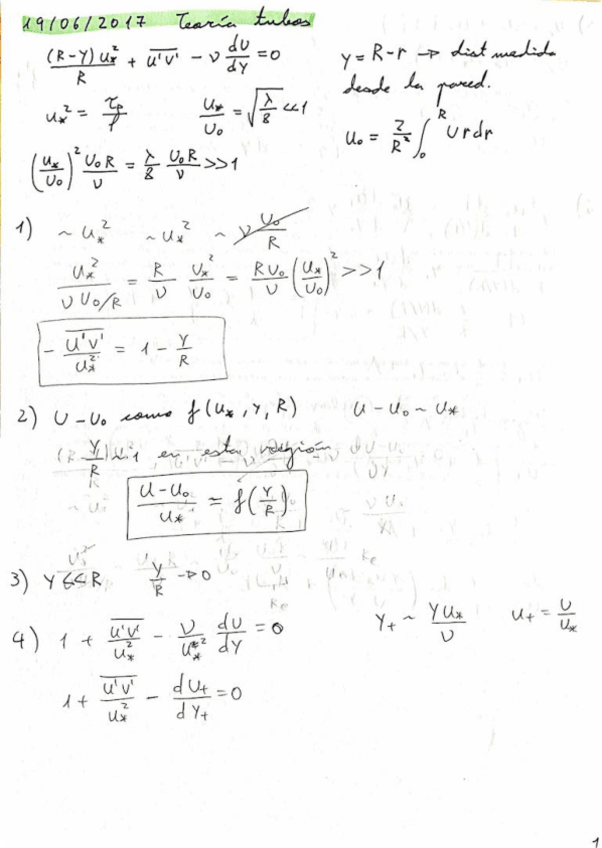 19/06/2017 Teoría tubos
(R-Y)u*²/R + \overline{u'v'} - ν dU/dY = 0
y = R-r → dist medida
desde la pared.
u*² = τp/ρ u*/U₀ = √(λ/8) <<1
u₀ = 2/R² ∫₀ᴿ U r dr
(u*/U₀)² U₀R/ν = λ/8 U₀R/ν >>1
1) ~ u*² ~ u*² ~ ν U₀/R
u*²/(ν U₀/R) = R/ν U*²/U₀ = RU₀/ν (u*/U₀)² >>1
- \overline{u'v'}/u*² = 1 - Y/R
2) U-U₀ como f(u*, Y, R) u-u₀ ~ u*
Y/R ~ 1 en esta región
(u-u₀)/u* = f(Y/R)
3) Y << R Y/R → 0
4) 1 + \overline{u'v'}/u*² - ν/u*² dU/dY = 0 Y₊ ~ Yu*/ν u₊ = U/u*
1 + \overline{u'v'}/u*² - dU₊/dY₊ = 0
1